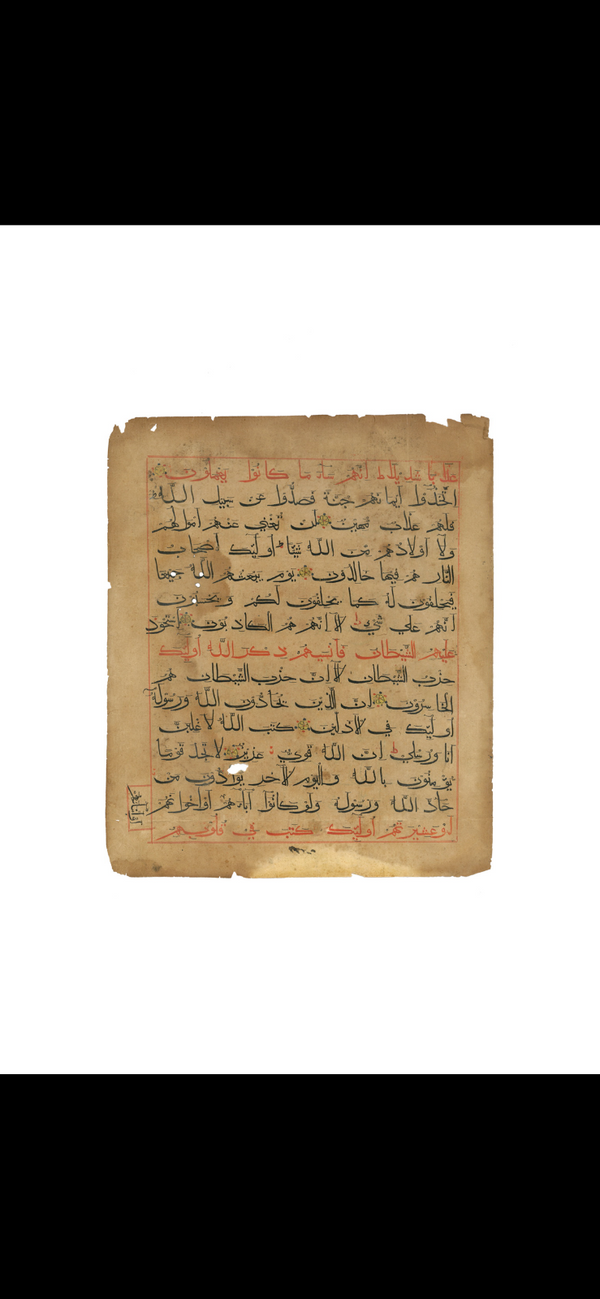 عذابا شديدا انهم ساء ما كانوا يعملون
اتخذوا ايمانهم جنة فصدوا عن سبيل الله
فلهم عذاب مهين لن تغني عنهم اموالهم
ولا اولادهم من الله شيئا اوليك اصحاب
النار هم فيها خالدون يوم يبعثهم الله جميعا
فيحلفون له كما يحلفون لكم و يحسبون
انهم علي شي الا انهم هم الكاذبون استحوذ
عليهم الشيطان فانسيهم ذكر الله اوليك
حزب الشيطان الا ان حزب الشيطان هم
الخاسرون ان الذين يحادون الله ورسوله
اوليك في الاذلين كتب الله لاغلبن
انا ورسلي ان الله قوي عزيز لا تجد قوما
يومنون بالله واليوم الاخر يوادون من
حاد الله ورسوله ولو كانوا اباهم او اخوانهم
او عشيرتهم اوليك كتب في قلوبهم
او ابناهم